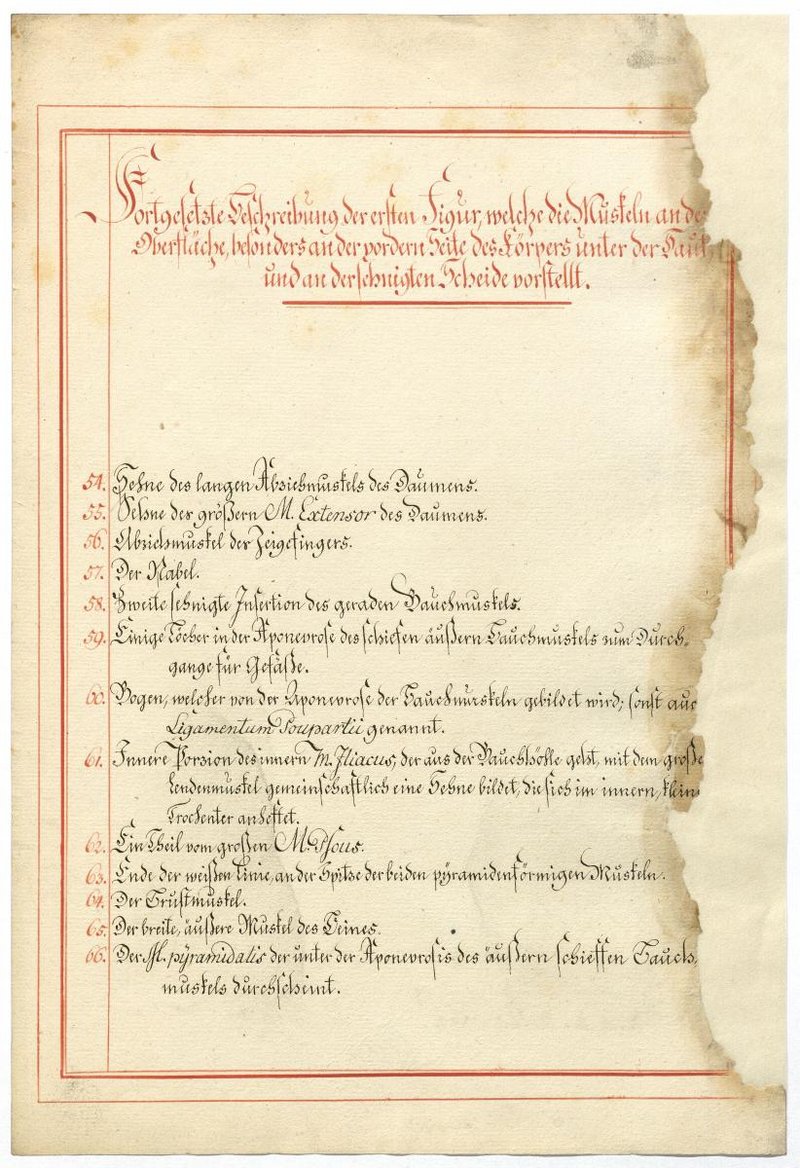 Fortgesetzte Beschreibung der ersten Figur, welche die Muskeln an de
Oberfläche, besonders an der vordern Seite des Körpers unter der Haut,
und an der sehnigten Scheide vorstellt.
54. Sehne des langen Abziehmuskels des Daumens.
55. Sehne des größern M. Extensor des Daumens.
56. Abziehmuskel der Zeigefingers.
57. Der Nabel.
58. Zweite sehnigte Insertion des geraden Bauchmuskels.
59. Einige Löcher in der Aponevrose des schiefen äußern Bauchmuskels zum Durch-
gange für Gefäße.
60. Bogen, welcher von der Aponevrose der Bauchmuskeln gebildet wird; sonst auc
Ligamentum Poupartii genannt.
61. Innere Porzion des innern M. Iliacus, der aus der Bauchhöhle geht, mit dem große
Lendenmuskel gemeinschaftlich eine Sehne bildet, die sich im innern, klein
Trochenter anheftet.
62. Ein Theil vom großen M. Psous.
63. Ende der weißen Linie, an der Spitze der beiden pÿramidenförmigen Muskeln.
64. Der Brustmuskel.
65. Der breite, äußere Muskel des Beines.
66. Der M. pÿramidalis der unter der Aponevrosis des äußern schieffen Bauch,
muskels durchscheint.